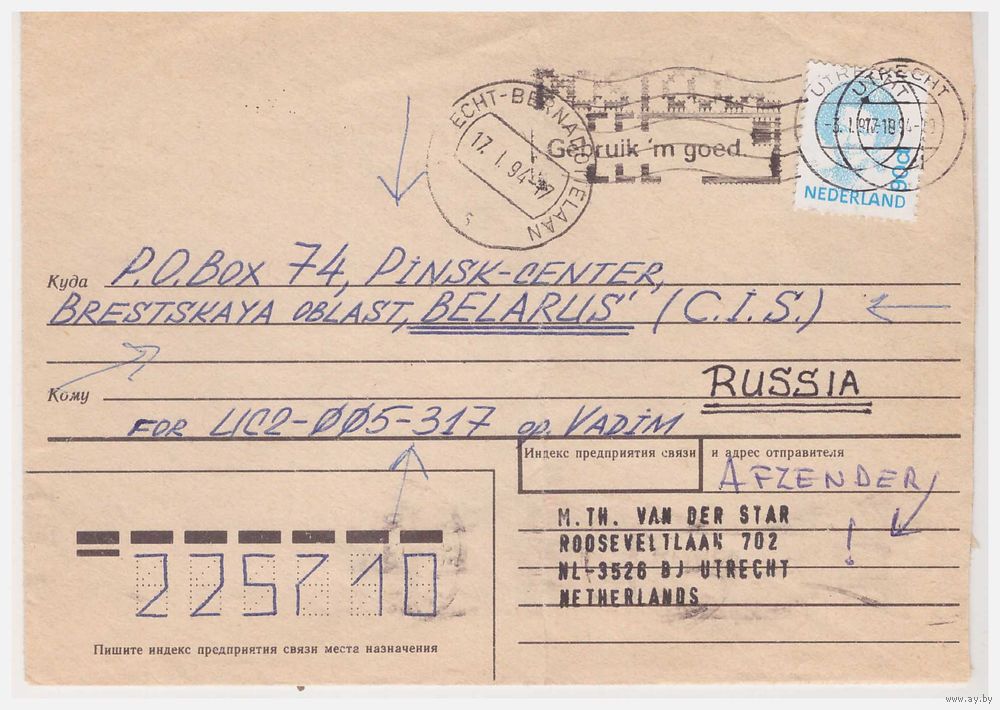 UTRECHT
UTRECHT
UTRECHT-BERNADOTTELAAN
17. I. 94.-17
s
Gebruik 'm goed.
90c
NEDERLAND
Куда P.O.BOX 74, PINSK-CENTER,
BRESTSKAYA OBLAST, BELARUS' (C.I.S.)
RUSSIA
Кому
FOR UC2-ØØ5-317 op. VADIM
Индекс предприятия связи и адрес отправителя
AFZENDER
!
M.TH. VAN DER STAR
ROOSEVELTLAAN 702
NL-3526 BJ UTRECHT
NETHERLANDS
225710
Пишите индекс предприятия связи места назначения
www.ay.by